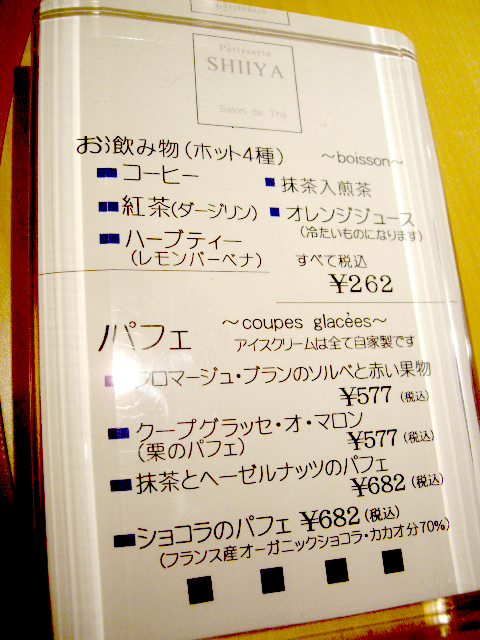 Pâtisserie
SHIIYA
Salon de Thé
お飲み物(ホット4種) ～boisson～
コーヒー
抹茶入煎茶
紅茶(ダージリン)
オレンジジュース
(冷たいものになります)
ハーブティー
(レモンバーベナ)
すべて税込
¥262
パフェ ～coupes glacées～
アイスクリームは全て自家製です
フロマージュ・ブランのソルベと赤い果物
¥577 (税込)
クープグラッセ・オ・マロン
(栗のパフェ)
¥577 (税込)
抹茶とヘーゼルナッツのパフェ
¥682 (税込)
ショコラのパフェ ¥682 (税込)
(フランス産オーガニックショコラ・カカオ分70%)